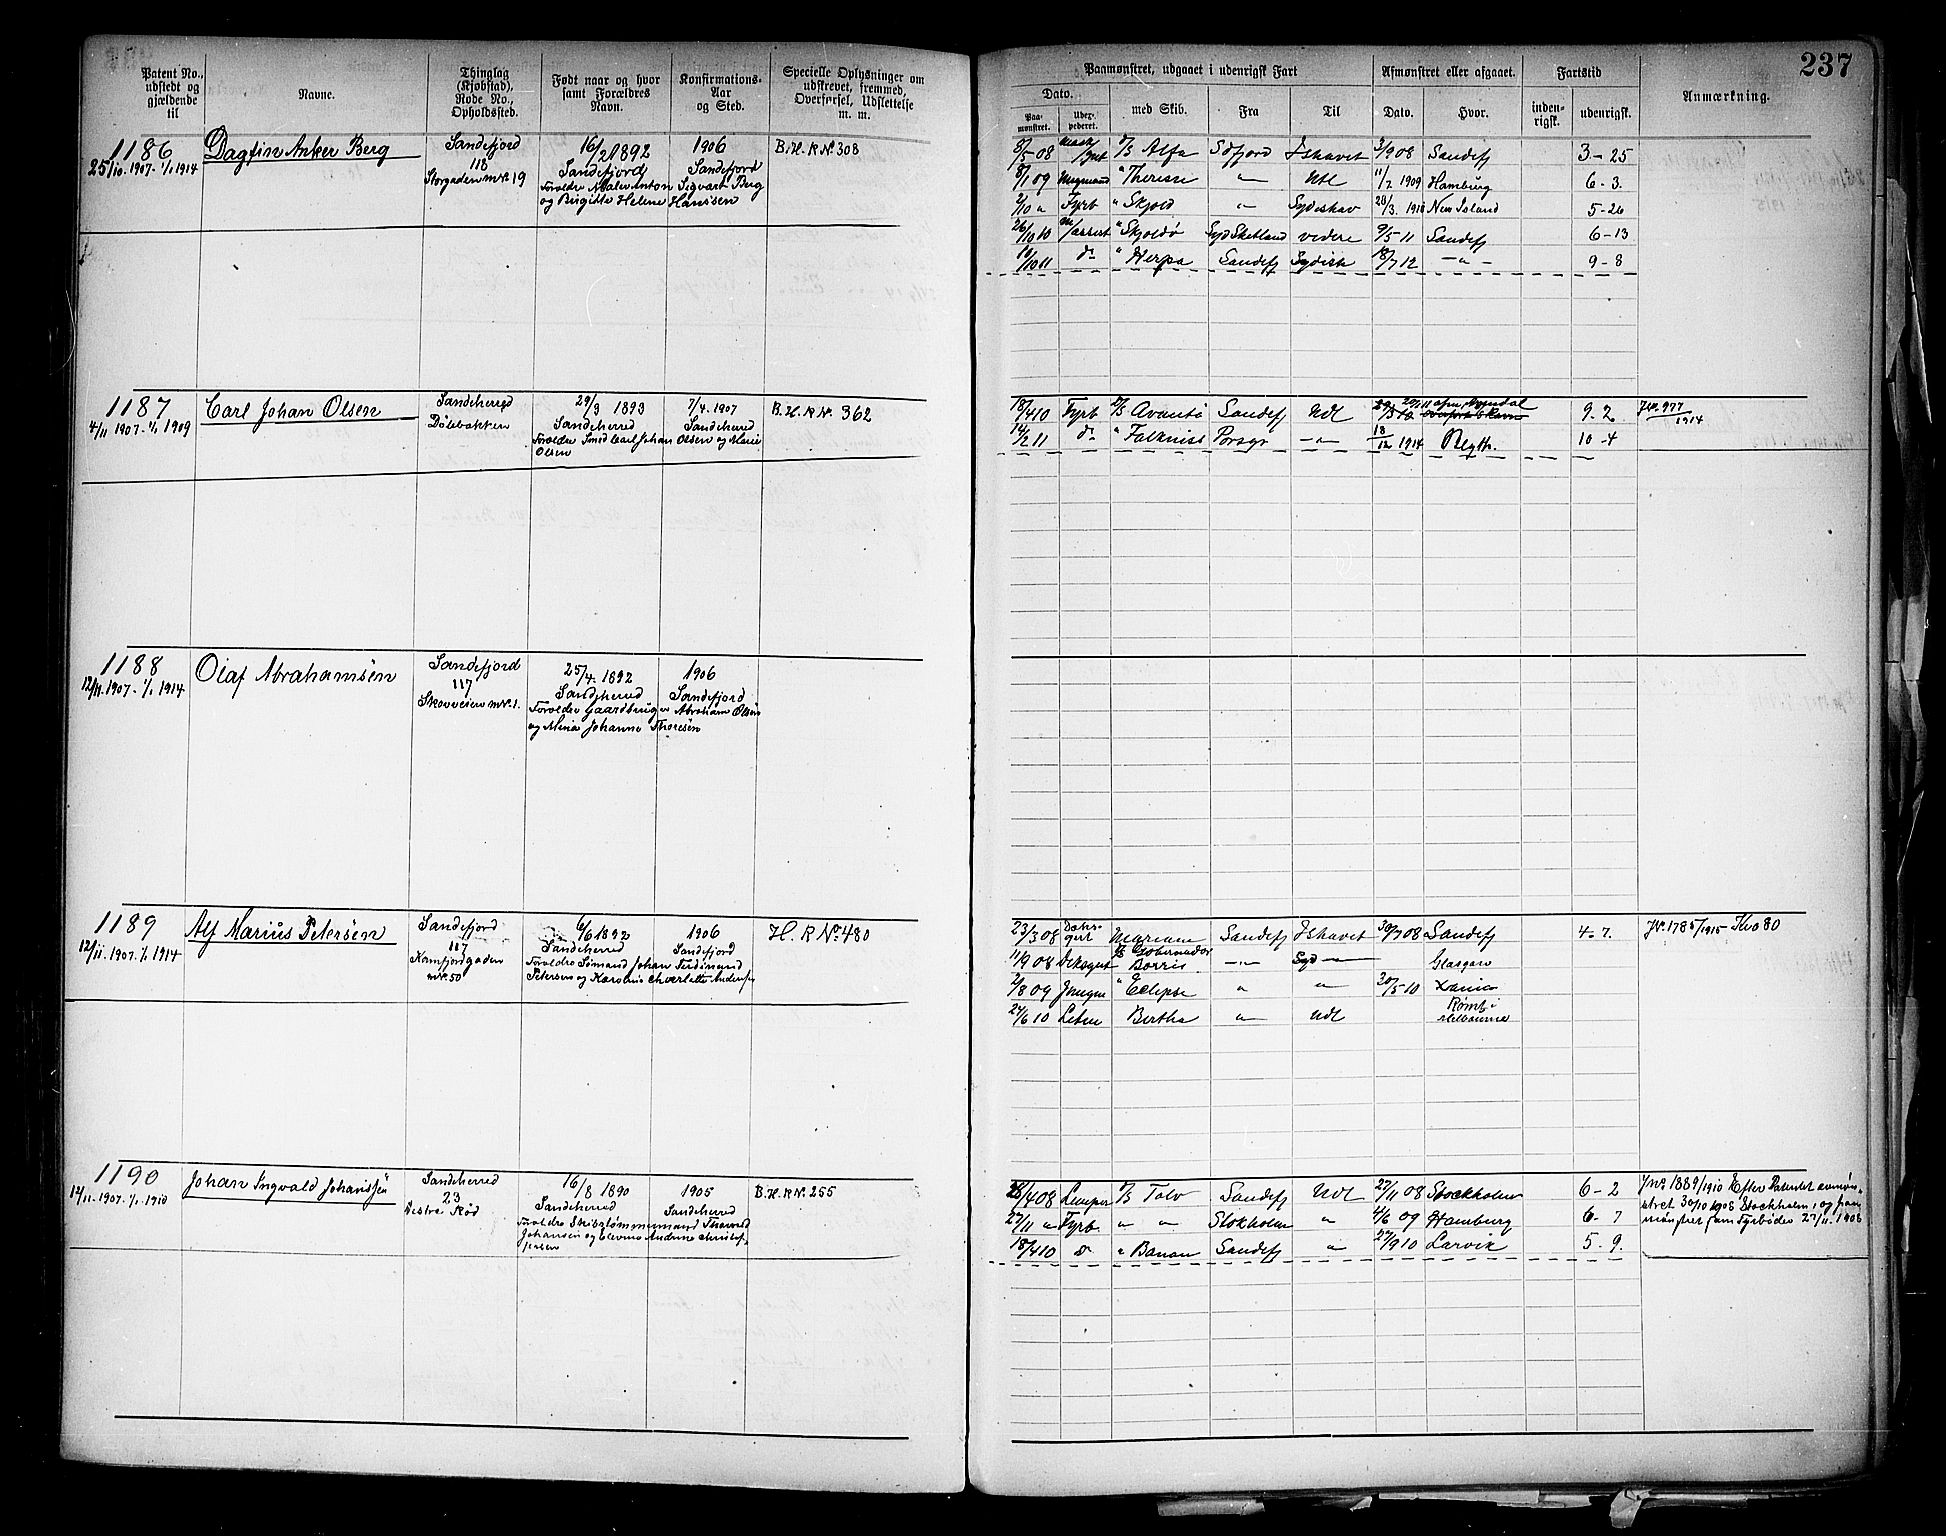 237
Patent No., udstedt og gjældende til
Navne.
Thinglag (Kjøbstad), Rode No., Opholdssted.
Født naar og hvor samt Forældres Navn.
Konfirmations-Aar og Sted.
Specielle Oplysninger om udstrevet, fremmed, Overførsel, Udslettelse m. m.
Paamønstret, udgaaet i udenrigsk Fart
Afmønstret eller afgaaet.
Fartstid
Anmærkning.
Dato.
Paamønstret.
med Skib.
Fra
Til
Dato.
Hvor.
inden-rigsk.
udenrigsk.
1186
25/10.1907-1/1 1914
Dagfin Anker Berg
Sandefjord
118
Storgaden mk. 19
16/2 1892
Sandefjord
Forældre Maler Anton Sigvart Berg
og Birgitte Helene Hanssen
1906
Sandefjord
B.H.R No 308
8/5 08 Alfa Sdfjord Ishavet 3/9 08 Sandefj 3-25
8/1 09 " Therese " Udl 11/7 1909 Hamburg 6-3.
2/10 " Fyrb " Skjold " Sydishav 28/3. 1910 New Island 5-26
26/10 10 " Skjoldø Syd Shetland videre 9/5 11 Sandefj 6-13
10/10 11 do " Herpa Sandefj Sydish 18/7 12 -"- 9-8
1187
4/11 1907-1/1 1909
Carl Johan Olsen
Sandeherred
Dølebakken
29/3 1893
Sandeherred
Forældre Smed Carl Johan Olsen og Marie
Olsen
7/4. 1907
Sandeherred
B.H.R No. 362
18/4 10 Fyrb Avanti Sandefj Udl 9-2 977/1914
14/2 11 do " Falkniss Porsgr -"- 18/12 1914 10-4
1188
12/11.1907-1/1 1914
Olaf Abrahamsen
Sandefjord
117
Skovveien mk. 1.
25/4. 1892
Sandeherred
Forældre Gaardbruger Abraham Olsen
og Mina Johanne Thoresen
1906
Sandefjord
1189
12/11.1907-1/1 1914
Alf Marius Petersen
Sandefjord
117
Kamfjordgaden
mk 50
6/6 1892
Sandeherred
Forældre Sømand Johan Ferdinand
Petersen og Karoline
1906
Sandefjord
H.R No. 480
23/3 08 Sandefj Ishavet 30/7 08 Sandefj 4-7. 1785/1915
11/9 08 Dæksgut Borris -"- Syd -"- Glasgow
2/8 09 " Eclipse " " 30/5 10
24/6 10 Bertha " Udl Rømt i
Melbourne
1190
14/11.1907-1/1.1910
Johan Ingvald Johanssen
Sandeherred
23
Vestre Rød
16/8 1890
Sandeherred
Forældre Skibstømmermand
1905
Sandeherred
B.H.R No. 255
28/4 08 Lemper Talv Sandefj Udl 27/11 08 Stockholm 6-2 1889/1910 Efter Patentet afmøn-
27/11 " Fyrb. " " Stokholm " 4/6 09 Hamburg 6-7 stret 30/10 1908 Stockholm, og paa-
mønstret som Fyrbøder 27/11. 1908
18/4 10 do " Banan Sandefj " 27/9 10 Larvik 5-9.